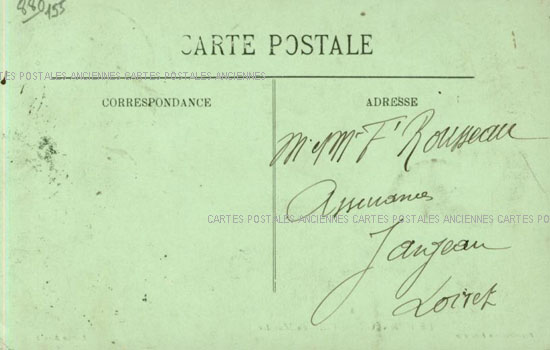 880155
CARTE POSTALE
CARTES POSTALES ANCIENNES CARTES POSTALES ANCIENNES
CORRESPONDANCE
ADRESSE
Mr & Mme Ft Rousseau
Assurances
CARTES POSTALES ANCIENNES CARTES POSTALES ANCIENNES CARTES POS
Janjeau
Loiret